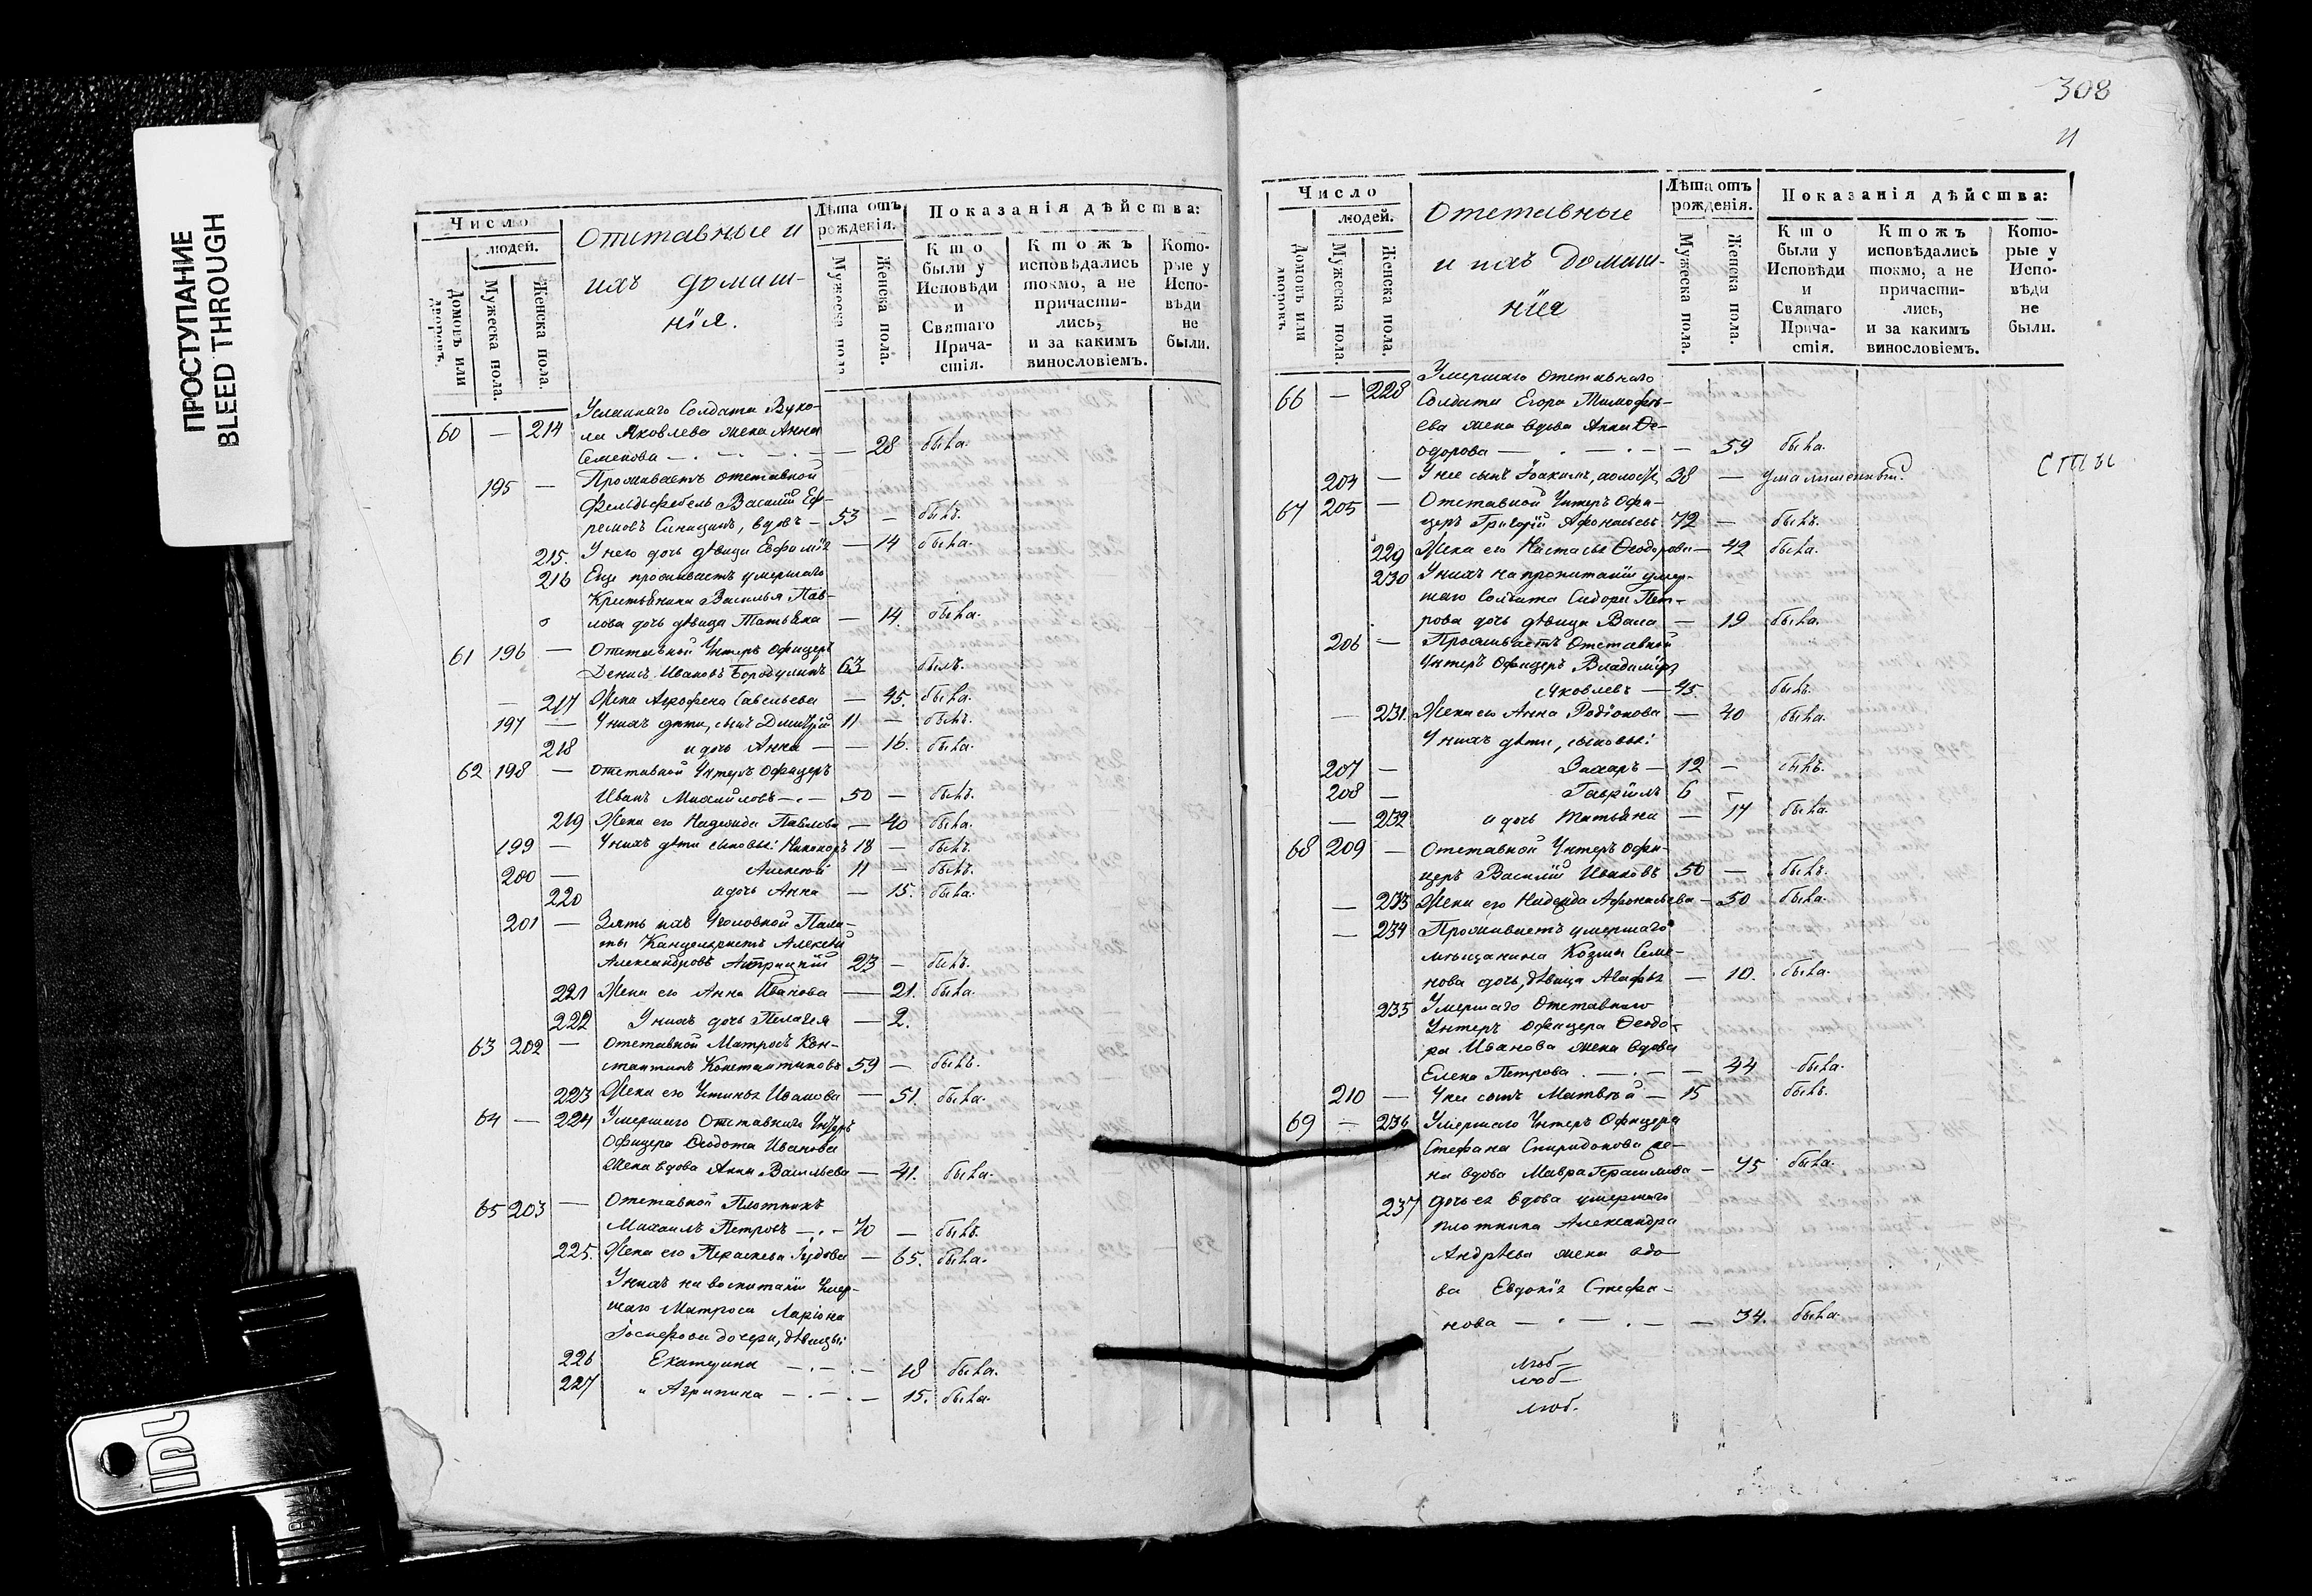 ПРОСТУПАНИЕ
BLEED THROUGH
Число
людей.
Домовъ или дворовъ.
Мужеска пола.
Женска пола.
Отставные и
ихъ домаш-
нія.
Лѣта отъ
рожденія.
Мужеска пола
Женска пола.
Показанія дѣйства:
Кто
были у
Исповѣди
и
Святаго
Прича-
стія.
Ктожъ
исповѣдались
токмо, а не
причасти-
лись,
и за какимъ
винословіемъ.
Кото-
рые у
Испо-
вѣди
не
были.
Солдата Вуко-
60 — 214 ла Яковлева жена Анна
Семенова — 28 была.
195 — Проживаетъ отставной
Фельдъфебель Василій Еф-
ремовъ Синицынъ, вдовъ — 53 — былъ.
215. У него дочь дѣвица Евфимія — 14 была.
216 Еще проживаетъ умершаго
Крестьянина Василья Пав-
лова дочь дѣвица Татьяна — 14. была.
61 196 — Отставной Унтеръ Офицеръ
Денисъ Ивановъ Бородулинъ 63 былъ.
— 217 Жена Агрофена Савельева — 45. была.
197 — У нихъ дети, сынъ Димитрій 11 — былъ.
218 и дочь Анна — — 16. была.
62 198 — Отставной Унтеръ Офицеръ
Иванъ Михайловъ — 50 — былъ.
219 Жена его Надежда Павлова — 40 была.
199 — У нихъ дети сыновья: Никоноръ 18 — былъ.
200 — Алексей 11 — былъ.
220 и дочь Анна — 15. была.
201 — Зять ихъ Уголовной Пала-
ты Канцеляристъ Алексѣй
Александровъ 23 — былъ.
221 Жена его Анна Иванова — 21. была.
222 У нихъ дочь Пелагея — 2.
63 202 — Отставной Матросъ Кон-
стантинъ Константиновъ 59 — былъ.
223 Жена его Устинья Иванова — 51. была.
64 — 224 Умершаго Отставнаго Унтеръ
Офицера Ѳеодота Иванова
жена вдова Анна Васильева — 41. была.
65 203 — Отставной Плотникъ
Михаилъ Петровъ — 70 — былъ.
225. Жена его Параскева — 65. была.
У нихъ на воспитаніи умер-
шаго Матроса Ларіона
Іосифова дочери, дѣвицы:
226 Екатерина — 18 была.
227 " Агрипина — 15. была.
308
Число
людей.
Домовъ или дворовъ.
Мужеска пола.
Женска пола.
Отставные
и ихъ домаш-
нія
Лѣта отъ
рожденія.
Мужеска пола.
Женска пола.
Показанія дѣйства:
Кто
были у
Исповѣди
и
Святаго
Прича-
стія.
Ктожъ
исповѣдались
токмо, а не
причасти-
лись,
и за какимъ
винословіемъ.
Кото-
рые у
Испо-
вѣди
не
были.
Умершаго отставнаго
66 — 228 Солдата Егора Тимофѣ-
ева жена вдова Анна Ѳе-
одорова — — 59 была.
204 — У нее сынъ Іоакимъ, холостъ, 38 — умалишенный.
67 205 — Отставной Унтеръ Офи-
церъ Григорій Афонасьевъ 72 — былъ.
229 Жена его Настасья Ѳеодорова — 42 была.
230 У нихъ на пропитаніи умер-
шаго Солдата Сидора Пет-
рова дочь дѣвица Васа — 19 была.
206 — Проживаетъ Отставной
Унтеръ Офицеръ Владиміръ
Яковлевъ — 45. былъ.
— 231. Жена его Анна Родіонова — 40 была.
У нихъ дѣти, сыновья:
207 — Захаръ — 12 — былъ.
208 — Гавріилъ 6 —
— 232 и дочь Татьяна — 17 была.
68 209 — Отставной Унтеръ Офи-
церъ Василій Ивановъ 50 — былъ.
— 233 Жена его Надежда Афонасьева — 50 была.
— 234 Проживаетъ умершаго
мѣщанина Козмы Семе-
нова дочь, дѣвица Агафья — 10. была.
235 Умершаго Отставнаго
Унтеръ Офицера Ѳеодо-
ра Иванова жена вдова
Елена Петрова — — 44 была.
210 — У нее сынъ Матвѣй — 15 былъ.
69 — 236 Умершаго Унтеръ Офицера
Стефана Спиридонова же-
на вдова Мавра Герасимова — 45 была.
237 Дочь ея вдова умершаго
плотника Александра
Андрѣева жена вдо-
ва Евдокія Стефа-
нова — — 34. была.